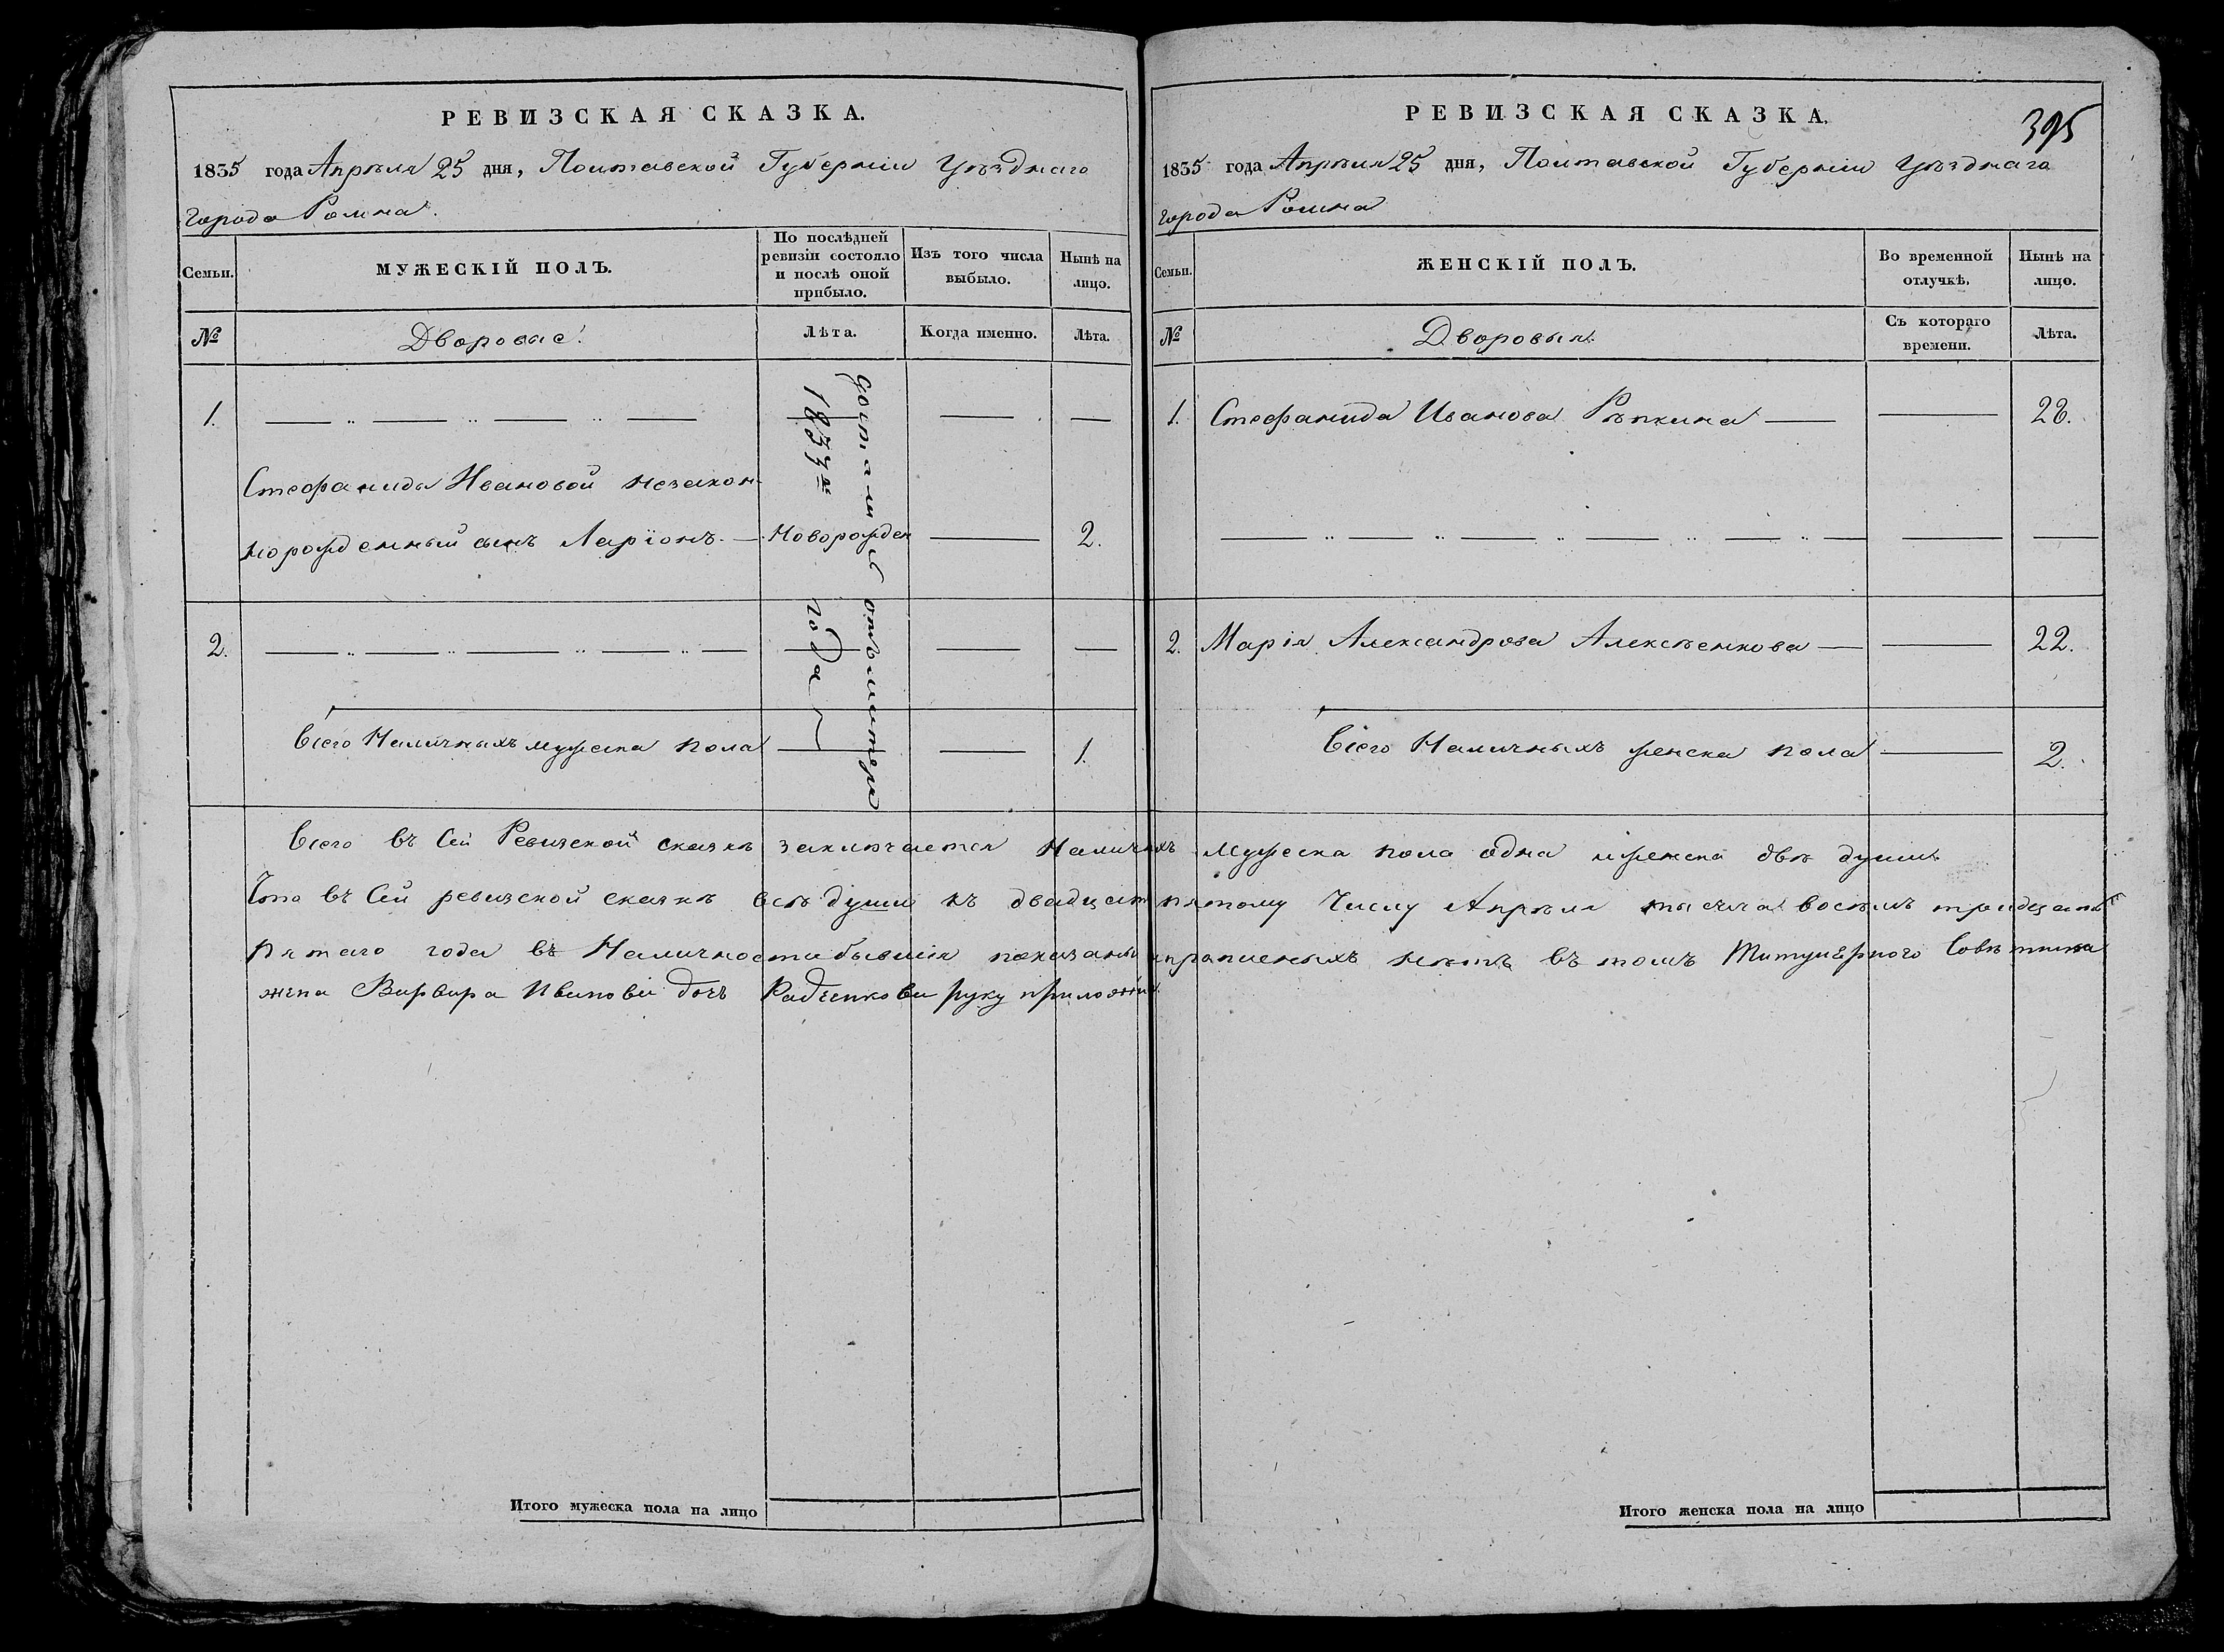 РЕВИЗСКАЯ СКАЗКА.
1835 года Апрѣля 25 дня, Полтавской Губерніи Уѣзднаго
города Ромна.
Семьи.
МУЖЕСКІЙ ПОЛЪ.
По послѣдней ревизіи состояло и послѣ оной прибыло.
Изъ того числа выбыло.
Нынѣ на лицо.
№
Дворовые.
Лѣта.
Когда именно.
Лѣта.
1.
Стефаниды Ивановой незакон-
норожденный сынъ Ларіонъ. — Новорожден — 2.
2.
Всего Наличныхъ мужеска пола — 1.
достались отъ матери
1833го года
РЕВИЗСКАЯ СКАЗКА.
395
1835 года Апрѣля 25 дня, Полтавской Губерніи Уѣзднаго
города Ромна
Семьи.
ЖЕНСКІЙ ПОЛЪ.
Во временной отлучкѣ.
Нынѣ на лицо.
№
Дворовыя.
Съ котораго времени.
Лѣта.
1. Стефанида Иванова Рѣпкина — 28.
2. Марія Александрова Алексѣенкова — 22.
Всего Наличныхъ женска пола — 2.
Всего въ Сей Ревизской сказкѣ заключается Наличныхъ мужеска пола одна и женска двѣ души
Что въ Сей ревизской сказкѣ всѣ души къ двадцать пятому Числу Апрѣля тысяча восемъ тридцать
пятаго года въ Наличности бывшія показаны и прописныхъ нѣтъ въ томъ Титулярного Совѣтника
жена Варвара Иванова дочь Радченкова руку приложила
Итого мужеска пола на лицо
Итого женска пола на лицо